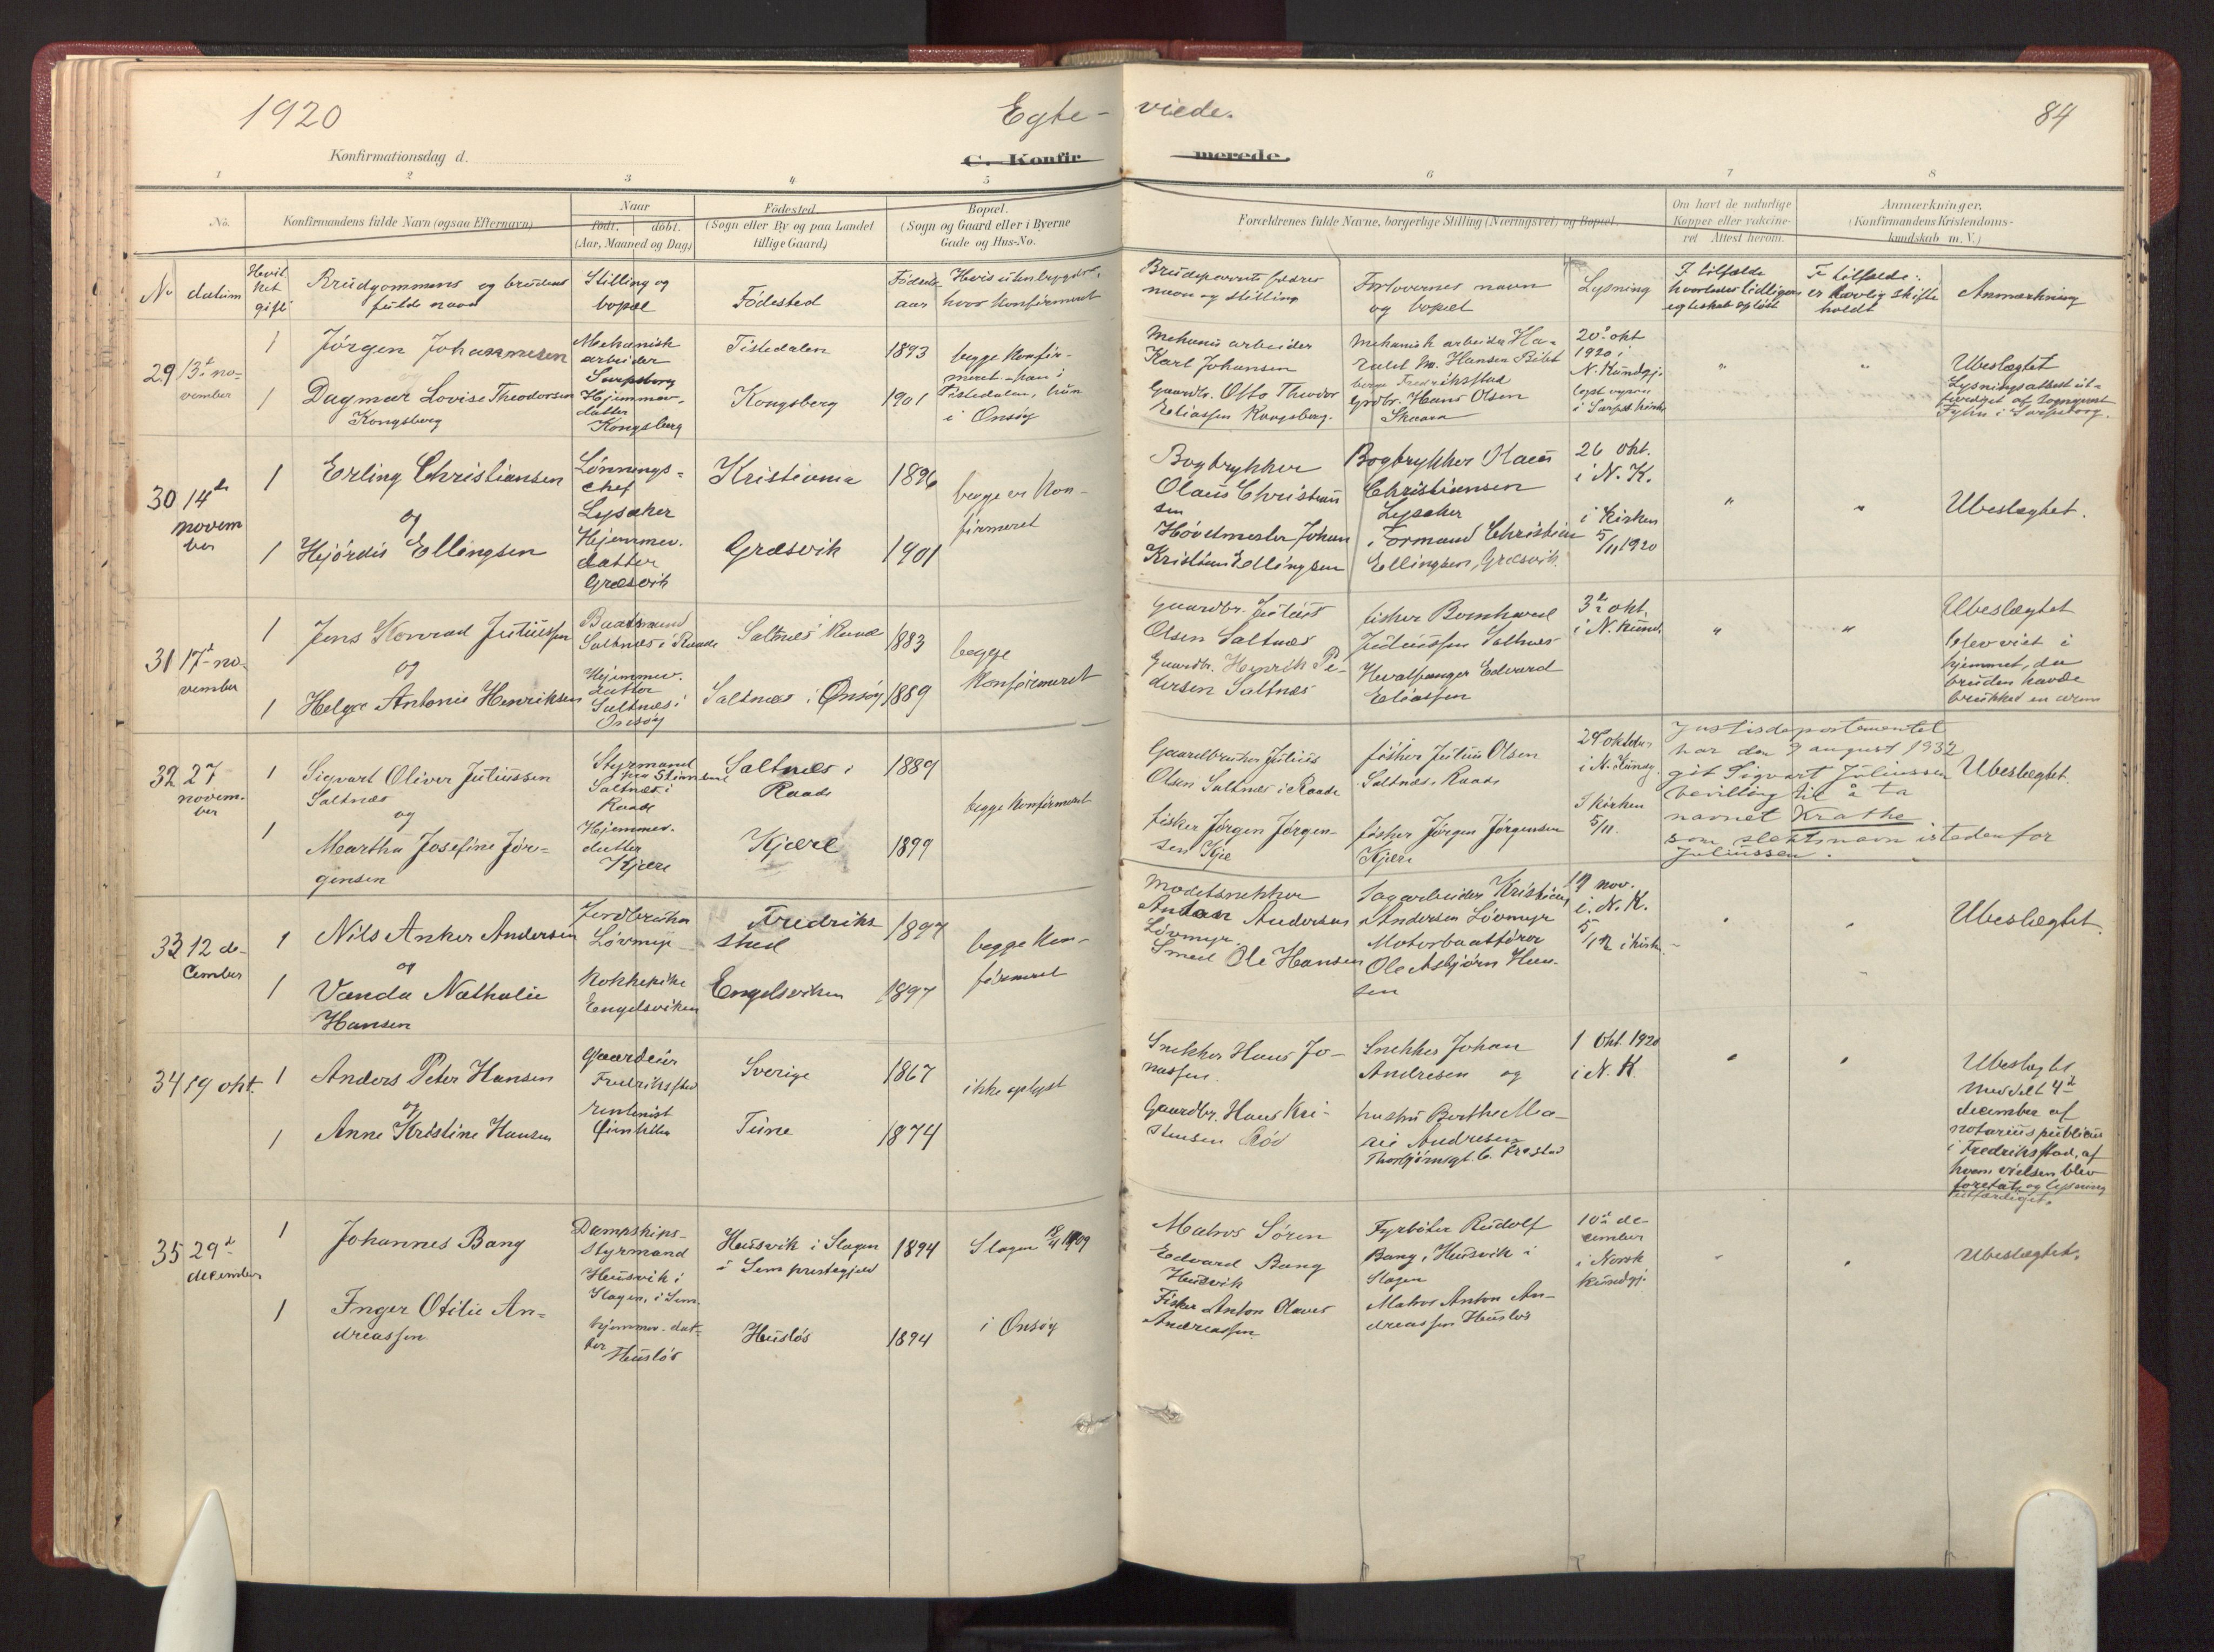 1920
Egte-
viede.
84
Konfirmationsdag d.
C. Konfir
merede.
1 2 3 4 5 6 7 8
No. Konfirmandens fulde Navn (ogsaa Efternavn) Naar født. døbt. (Aar, Maaned og Dag)
Fødested. (Sogn eller By og paa Landet tillige Gaard)
Bopæl. (Sogn og Gaard eller i Byerne Gade og Hus-No.
Forældrenes fulde Navne, borgerlige Stilling (Næringsvei) og Bopæl.
Om havt de naturlige Kopper eller vaccineret Attest herom.
Anmærkninger, (Konfirmandens Kristendomskundskab m. V.)
No datum Hvilket gift Brudgommens og brudens fulde navn Stilling og bopæl Fødested Fødselsaar Hvis utenbygds, hvor konfirmert
Brudeparrets fædres navn og stilling
Forlovernes navn og bopæl
Lysning
I tilfælde hvorledes tidligere egteskab opløst
I tilfælde: er lovlig skifte holdt
Anmærkning
29 13de november
1 Jørgen Johannesen Mekanisk arbeider Sarpsborg Tistedalen 1893
1 Dagmar Lovise Theodorsen Kongsberg Hjemmev. datter Kongsberg Kongsberg 1901
begge konfirmeret han i Tistedalen, hun i Onsøy
Mekanis arbeider Karl Johansen
Gaardbr. Otto Theodor Eliassen Kongsberg.
Mekanisk arbeider Harald M. Hansen
Fredriksstad
Grdbr. Hans Olsen Skaara
20de okt 1920 i N. Kundgj.
i Sarpsb kirke
Ubeslægtet
Lysningsattest utfærdiget af Sogneprest
i Sarpsborg.
30 14de november
1 Erling Christiansen Lønningschef Lysaker Kristiania 1896
og
1 Hjördis Ellingsen Hjemmev. datter Græsvik Græsvik 1901
begge er konfirmeret
Bogtrykker Olaus Christiansen
Hovdmester Johan Kristian Ellingsen
Bogtrykker Olaus Christiansen Lysaker
Formand Christian Ellingsen, Græsvik.
26 okt. i N. K.
i Kirken 5/11 1920
Ubeslægtet.
31 17de november
1 Jens Konrad Juliussen Baatsmand Saltnæs i Raade Saltnæs Raade 1883
og
1 Helga Antonie Henriksen Hjemmev. datter Saltnæs i Onsøy Saltnæs i Onsøy 1889
begge konfirmeret
Gaardbr. Julius Olsen Saltnæs
Gaardbr. Henrik Pedersen Saltnæs
fisker Bernhard Juliussen Saltnæs
Hvalfanger Edvard Eliassen
3de okt. i N. Kund.
Ubeslægtet
blev viet i hjemmet, da bruden havde brukket en arm
32 27 november
1 Sigvart Oliver Juliussen Saltnæs Styrmand Saltnæs i Raade Saltnæs i Raade 1889
og
1 Martha Josefine Jørgensen Hjemmev. datter Kjære Kjære 1899
begge konfirmeret
Gaardbruker Julius Olsen Saltnæs i Raade
fisker Jørgen Jørgensen Kjære
fisker Julius Olsen Saltnæs, Raade
fisker Jørgen Jørgensen Kjære
29de oktober i N. Kundg.
I kirken 5/11.
Justisdepartementet har den 9 august 1932 git Sigvart Juliussen bevilling til å ta navnet Krathe som slektsnavn istedenfor Juliussen.
Ubeslægtet.
33 12 december
1 Nils Anker Andersen Jordbruker Løvmyr Fredriksstad 1897
og
1 Vanda Nathalie Hansen Kokkepike Engelsviken Engelsviken 1897
begge konfirmeret
Modelsnekker Anton Andersen Løvmyr.
Smed Ole Hansen
Sagarbeider Kristian Andersen Løvmyr
Motorbaatfører Ole Asbjørn Hansen
19 nov. i N. K.
5/12 i kirke
Ubeslægtet.
34 19 okt.
1 Anders Peter Hansen Gaardeier Fredriksstad Sverige 1867
og
1 Anne Kristine Hansen rentenist Tune 1874
ikke oplyst
Snekker Hans Jonassen.
Gaardbr. Hans Kristensen Rød
Snekker Johan Andresen og
hustru Berthe Marie Andresen Thorbjørnsgt. 6. Frestad
1 Okt 1920 i N. K.
Ubeslægtet
Meddelt 4de december af notarius publicus i Fredriksstad, af hvem vielsen blev foretat og lysning utfærdiget.
35 29de december
1 Johannes Bang Dampskipsstyrmand Husvik i Slagen, i Sem. Husvik i Slagen i Sems prestegjeld 1894 Slagen 18/4 1909
1 Inger Otilie Andreassen hjemmev. datter Husløs Husløs 1894 i Onsøy
Matros Søren Edvard Bang Husvik
Fisker Anton Olaves Andreassen.
Fyrbøter Rudolf Bang, Husvik i Slagen
Matros Anton Andreassen Husløs
10de december i Norsk kundgj.
Ubeslægtet.